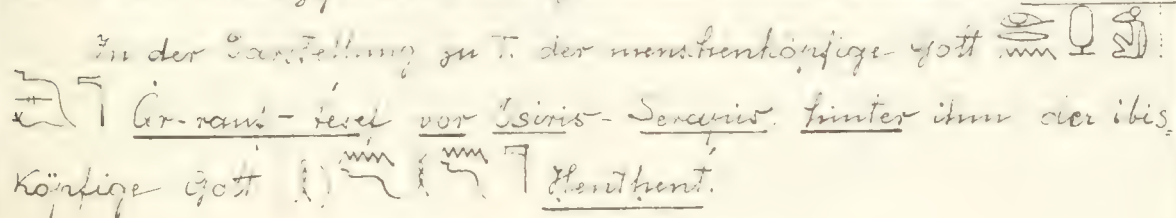 In der Darstellung zu T. der menschenköpfige Gott
Ȧr-ranf-ṭesef vor Osiris-Serapis. hinter ihm der ibis-
köpfige Gott Ḥentḥent.